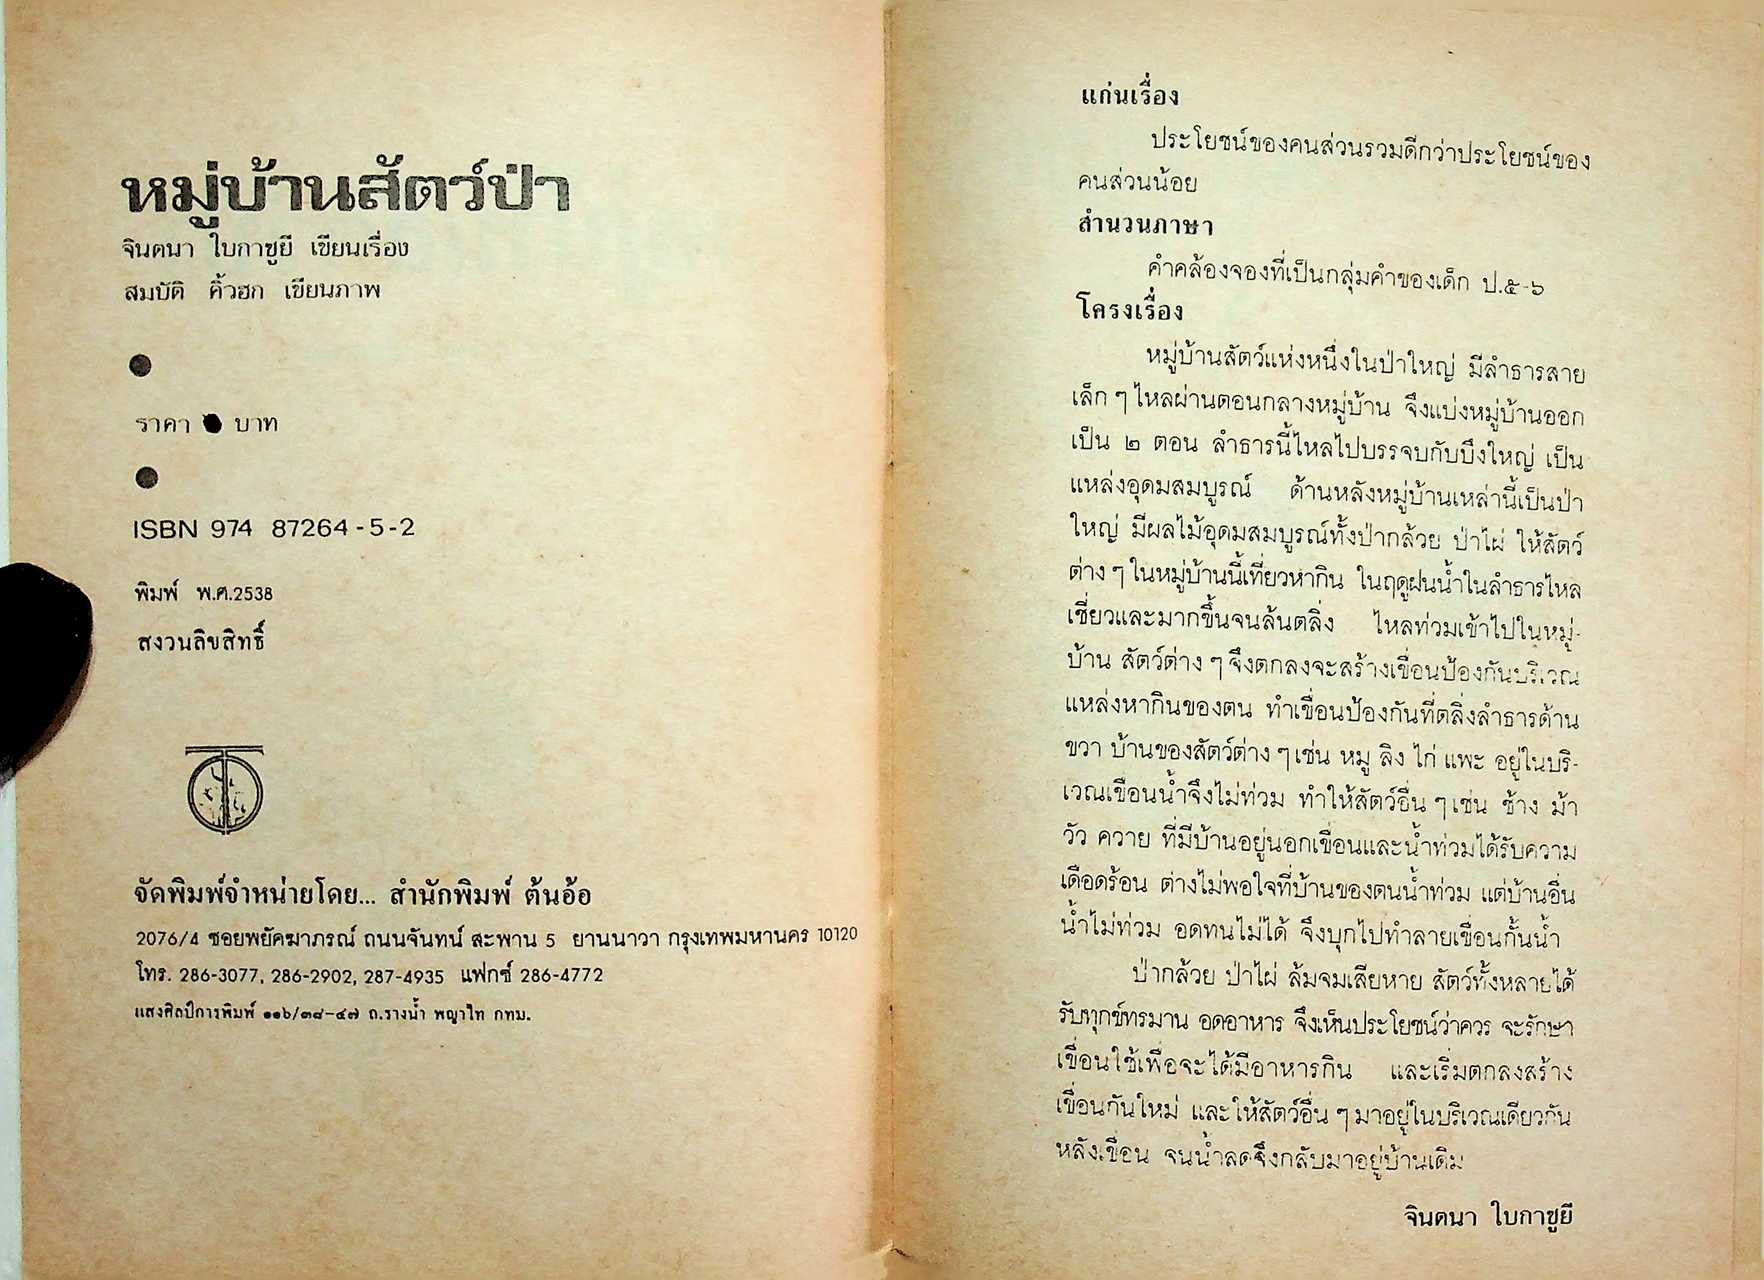 หมู่บ้านสัตว์ป่า
จินตนา ใบกาซูยี เขียนเรื่อง
สมบัติ คิ้วฮก เขียนภาพ
ราคา บาท
ISBN 974 87264-5-2
พิมพ์ พ.ศ.2538
สงวนลิขสิทธิ์
จัดพิมพ์จำหน่ายโดย... สำนักพิมพ์ ต้นอ้อ
2076/4 ซอยพยัคฆาภรณ์ ถนนจันทน์ สะพาน 5 ยานนาวา กรุงเทพมหานคร 10120
โทร. 286-3077, 286-2902, 287-4935 แฟกซ์ 286-4772
แสงศิลป์การพิมพ์ ๑๑๖/๓๘-๔๗ ถ.รางน้ำ พญาไท กทม.
แก่นเรื่อง
ประโยชน์ของคนส่วนรวมดีกว่าประโยชน์ของ
คนส่วนน้อย
สำนวนภาษา
คำคล้องจองที่เป็นกลุ่มคำของเด็ก ป.๕-๖
โครงเรื่อง
หมู่บ้านสัตว์แห่งหนึ่งในป่าใหญ่ มีลำธารสาย
เล็ก ๆ ไหลผ่านตอนกลางหมู่บ้าน จึงแบ่งหมู่บ้านออก
เป็น ๒ ตอน ลำธารนี้ไหลไปบรรจบกับบึงใหญ่ เป็น
แหล่งอุดมสมบูรณ์ ด้านหลังหมู่บ้านเหล่านี้เป็นป่า
ใหญ่ มีผลไม้อุดมสมบูรณ์ทั้งป่ากล้วย ป่าไผ่ ให้สัตว์
ต่าง ๆ ในหมู่บ้านนี้เที่ยวหากิน ในฤดูฝนน้ำในลำธารไหล
เชี่ยวและมากขึ้นจนล้นตลิ่ง ไหลท่วมเข้าไปในหมู่-
บ้าน สัตว์ต่าง ๆ จึงตกลงจะสร้างเขื่อนป้องกันบริเวณ
แหล่งหากินของตน ทำเขื่อนป้องกันที่ตลิ่งลำธารด้าน
ขวา บ้านของสัตว์ต่าง ๆ เช่น หมู ลิง ไก่ แพะ อยู่ในบริ-
เวณเขื่อนน้ำจึงไม่ท่วม ทำให้สัตว์อื่น ๆ เช่น ช้าง ม้า
วัว ควาย ที่มีบ้านอยู่นอกเขื่อนและน้ำท่วมได้รับความ
เดือดร้อน ต่างไม่พอใจที่บ้านของตนน้ำท่วม แต่บ้านอื่น
น้ำไม่ท่วม อดทนไม่ได้ จึงบุกไปทำลายเขื่อนกั้นน้ำ
ป่ากล้วย ป่าไผ่ ล้มจมเสียหาย สัตว์ทั้งหลายได้
รับทุกข์ทรมาน อดอาหาร จึงเห็นประโยชน์ว่าควร จะรักษา
เขื่อนใช้เพื่อจะได้มีอาหารกิน และเริ่มตกลงสร้าง
เขื่อนกันใหม่ และให้สัตว์อื่น ๆ มาอยู่ในบริเวณเดียวกัน
หลังเขื่อน จนน้ำลดจึงกลับมาอยู่บ้านเดิม
จินตนา ใบกาซูยี